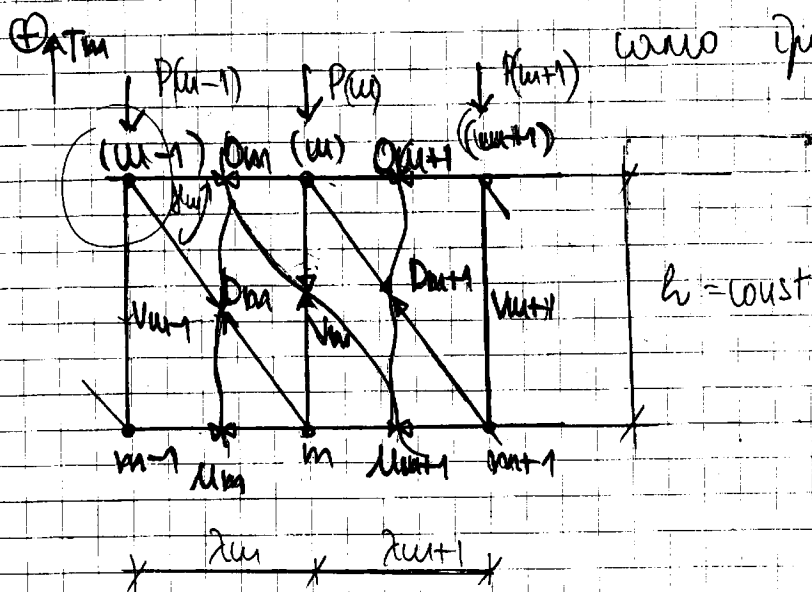 ⊕ Tm само
P(m-1) P(m) P(m+1)
(m-1) Om (m) Om+1 (m+1)
γm
Vm-1 Dm Vm Dm+1 Vm+1 h = const
m-1 Um m Um+1 m+1
λm λm+1